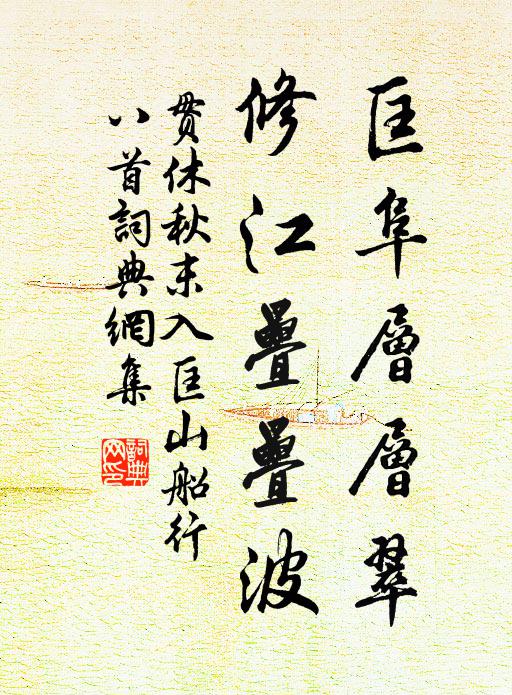 匡阜層層翠
修江疊疊波
貫休秋末入匡山船行
八首詞典網集
詞典网印